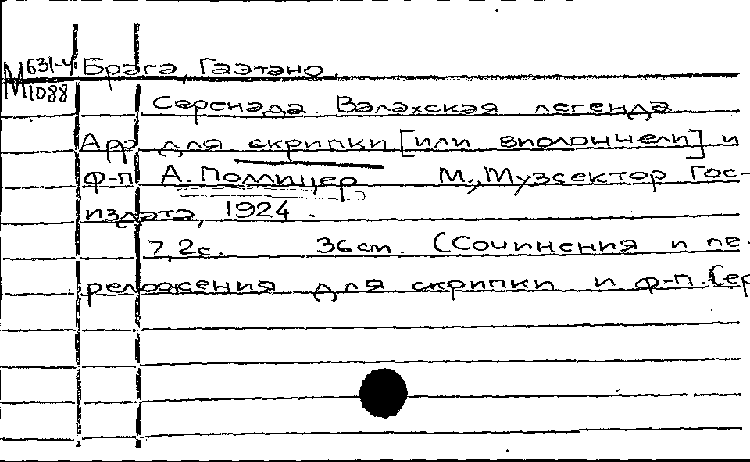 М 631-4 Брага, Гаэтано
1088
Серенада. Валахская легенда
Арр. для скрипки [или виолончели] и
ф-п. А. Поллицер. М., Музсектор Гос-
издата, 1924.
7, 2 с. 36 cm. (Сочинения и пе-
реложения для скрипки и ф-п. [Сер